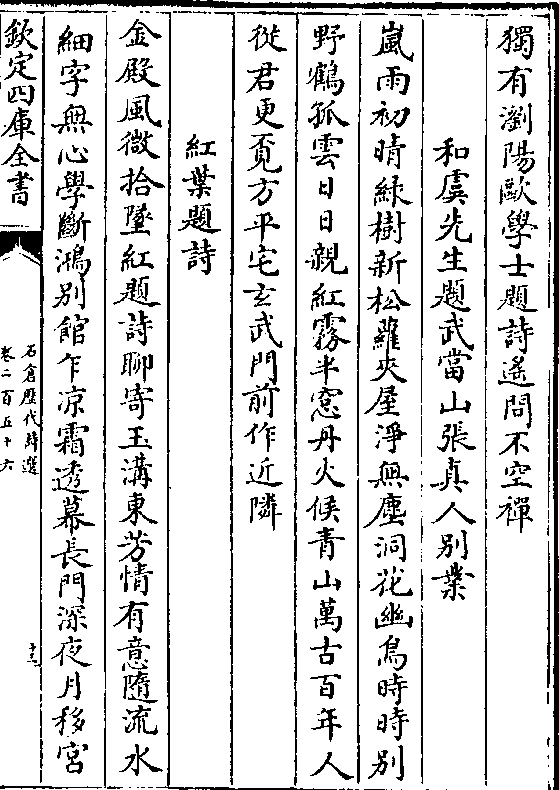 獨有瀏陽歐學士題詩遙問不空禪
和虞先生題武當山張真人别業
嵐雨初晴緑樹新松蘿夾屋淨無塵洞花幽鳥時時别
野鶴孤雲日日親紅霧半窓丹火候青山萬古百年人
従君更覓方平宅玄武門前作近隣
紅葉題詩
金殿風微拾墜紅題詩聊寄玉溝東芳情有意隨流水
細字無心學斷鴻别館乍凉霜透幕長門深夜月移宮
欽定四庫全書
石倉歷代詩選
卷二百五十六
十三